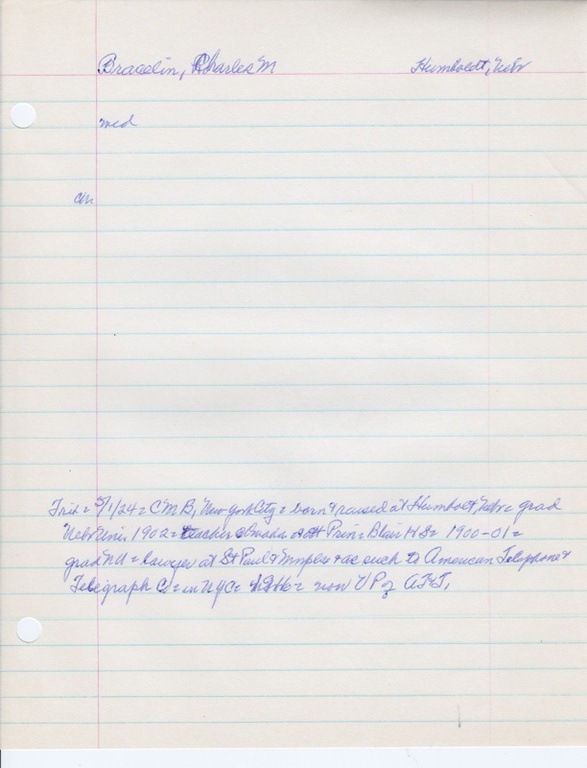 Bracelin, Charles M Humboldt, Nebr
med
an
Trib = 5/1/24 = CMB, New York City = born & raised at Humbolt, Nebr = grad
Nebr Univ 1902 = teacher Omaha Prin Blair HS = 1900-01 =
grad NU = lawyer at St Paul & Mnpls & as such to American Telephone &
Telegraph Co = in NYC = now VP of AT&T,